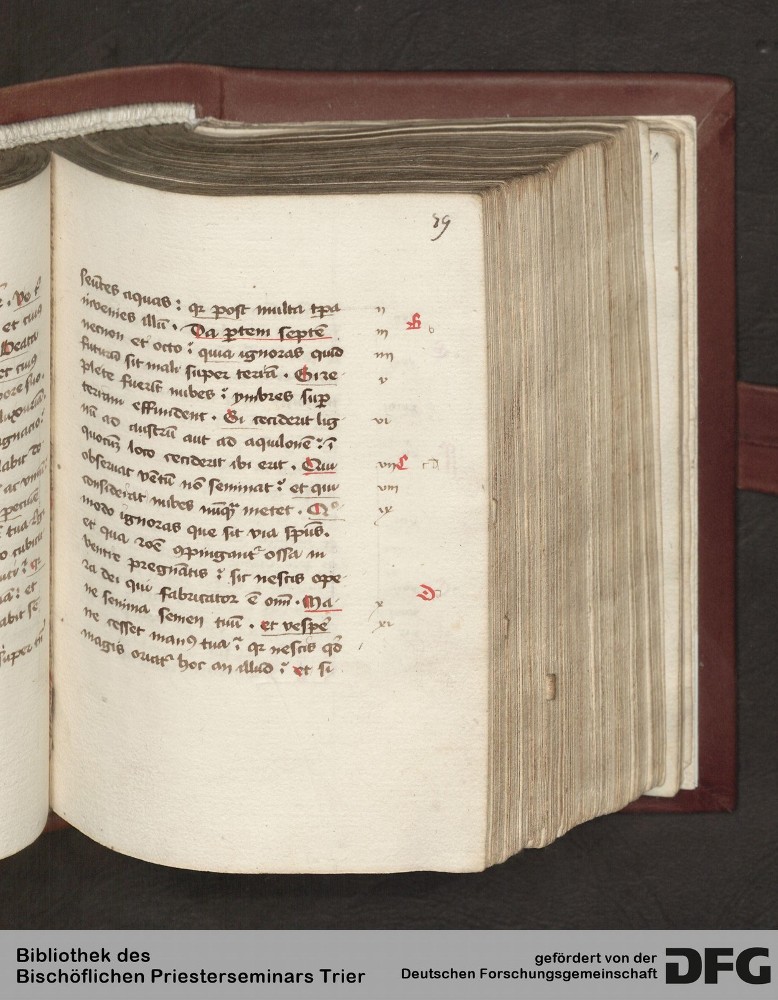 29
sentes aquas : qr post multa tpa
invenies illu . Da ptem septē
necnon et octo : quia ignoras quid
futurū sit mali super terrā . Si re
plete fuerīt nubes : ymbres sup
terram effundent . Si ceciderit lig
nū ad austrū aut ad aquilonē : ī
quocūqz loco ceciderit ibi erit . Qui
observat ventū nō seminat : et qui
considerat nubes nūqz metet . Qo
modo ignoras que sit via spūs .
et qua rōe 9pingantr ossa in
ventre pregnātis : sic nescis ope
ra dei qui fabricator ē oīm . Ma
ne semina semen tuū . et vespē
ne cesset man9 tua : qr nescis qd
magis oriatr hoc an illud : et si
ii
iii B b
iiii
v
vi
vii C
viii
ix
x D
xi
Bibliothek des
Bischöflichen Priesterseminars Trier
gefördert von der
Deutschen Forschungsgemeinschaft DFG